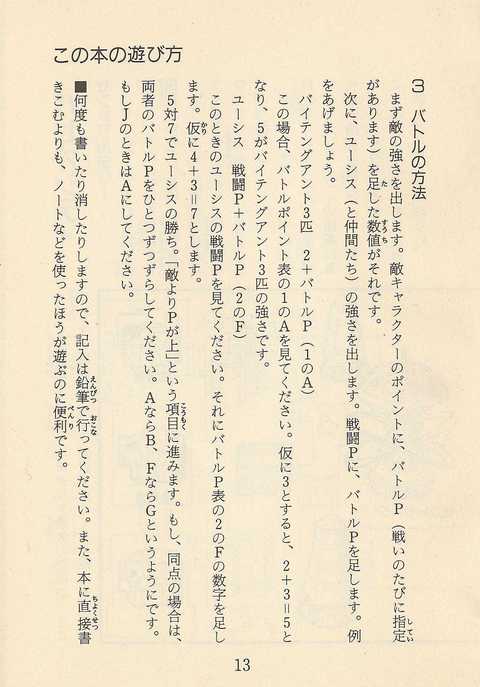 この本の遊び方
3 バトルの方法
まず敵の強さを出します。敵キャラクターのポイントに、バトルP（戦いのたびに指定
があります）を足した数値がそれです。
次に、ユーシス（と仲間たち）の強さを出します。戦闘Pに、バトルPを足します。例
をあげましょう。
バイテングアント3匹　2＋バトルP（1のA）
この場合、バトルポイント表の1のAを見てください。仮に3とすると、2＋3＝5と
なり、5がバイテングアント3匹の強さです。
ユーシス　戦闘P＋バトルP（2のF）
このときのユーシスの戦闘Pを見てください。それにバトルP表の2のFの数字を足し
ます。仮に4＋3＝7とします。
5対7でユーシスの勝ち。「敵よりPが上」という項目に進みます。もし、同点の場合は、
両者のバトルPをひとつずつずらしてください。AならB、FならGというようにです。
もしJのときはAにしてください。
■何度も書いたり消したりしますので、記入は鉛筆で行ってください。また、本に直接書
きこむよりも、ノートなどを使ったほうが遊ぶのに便利です。
13